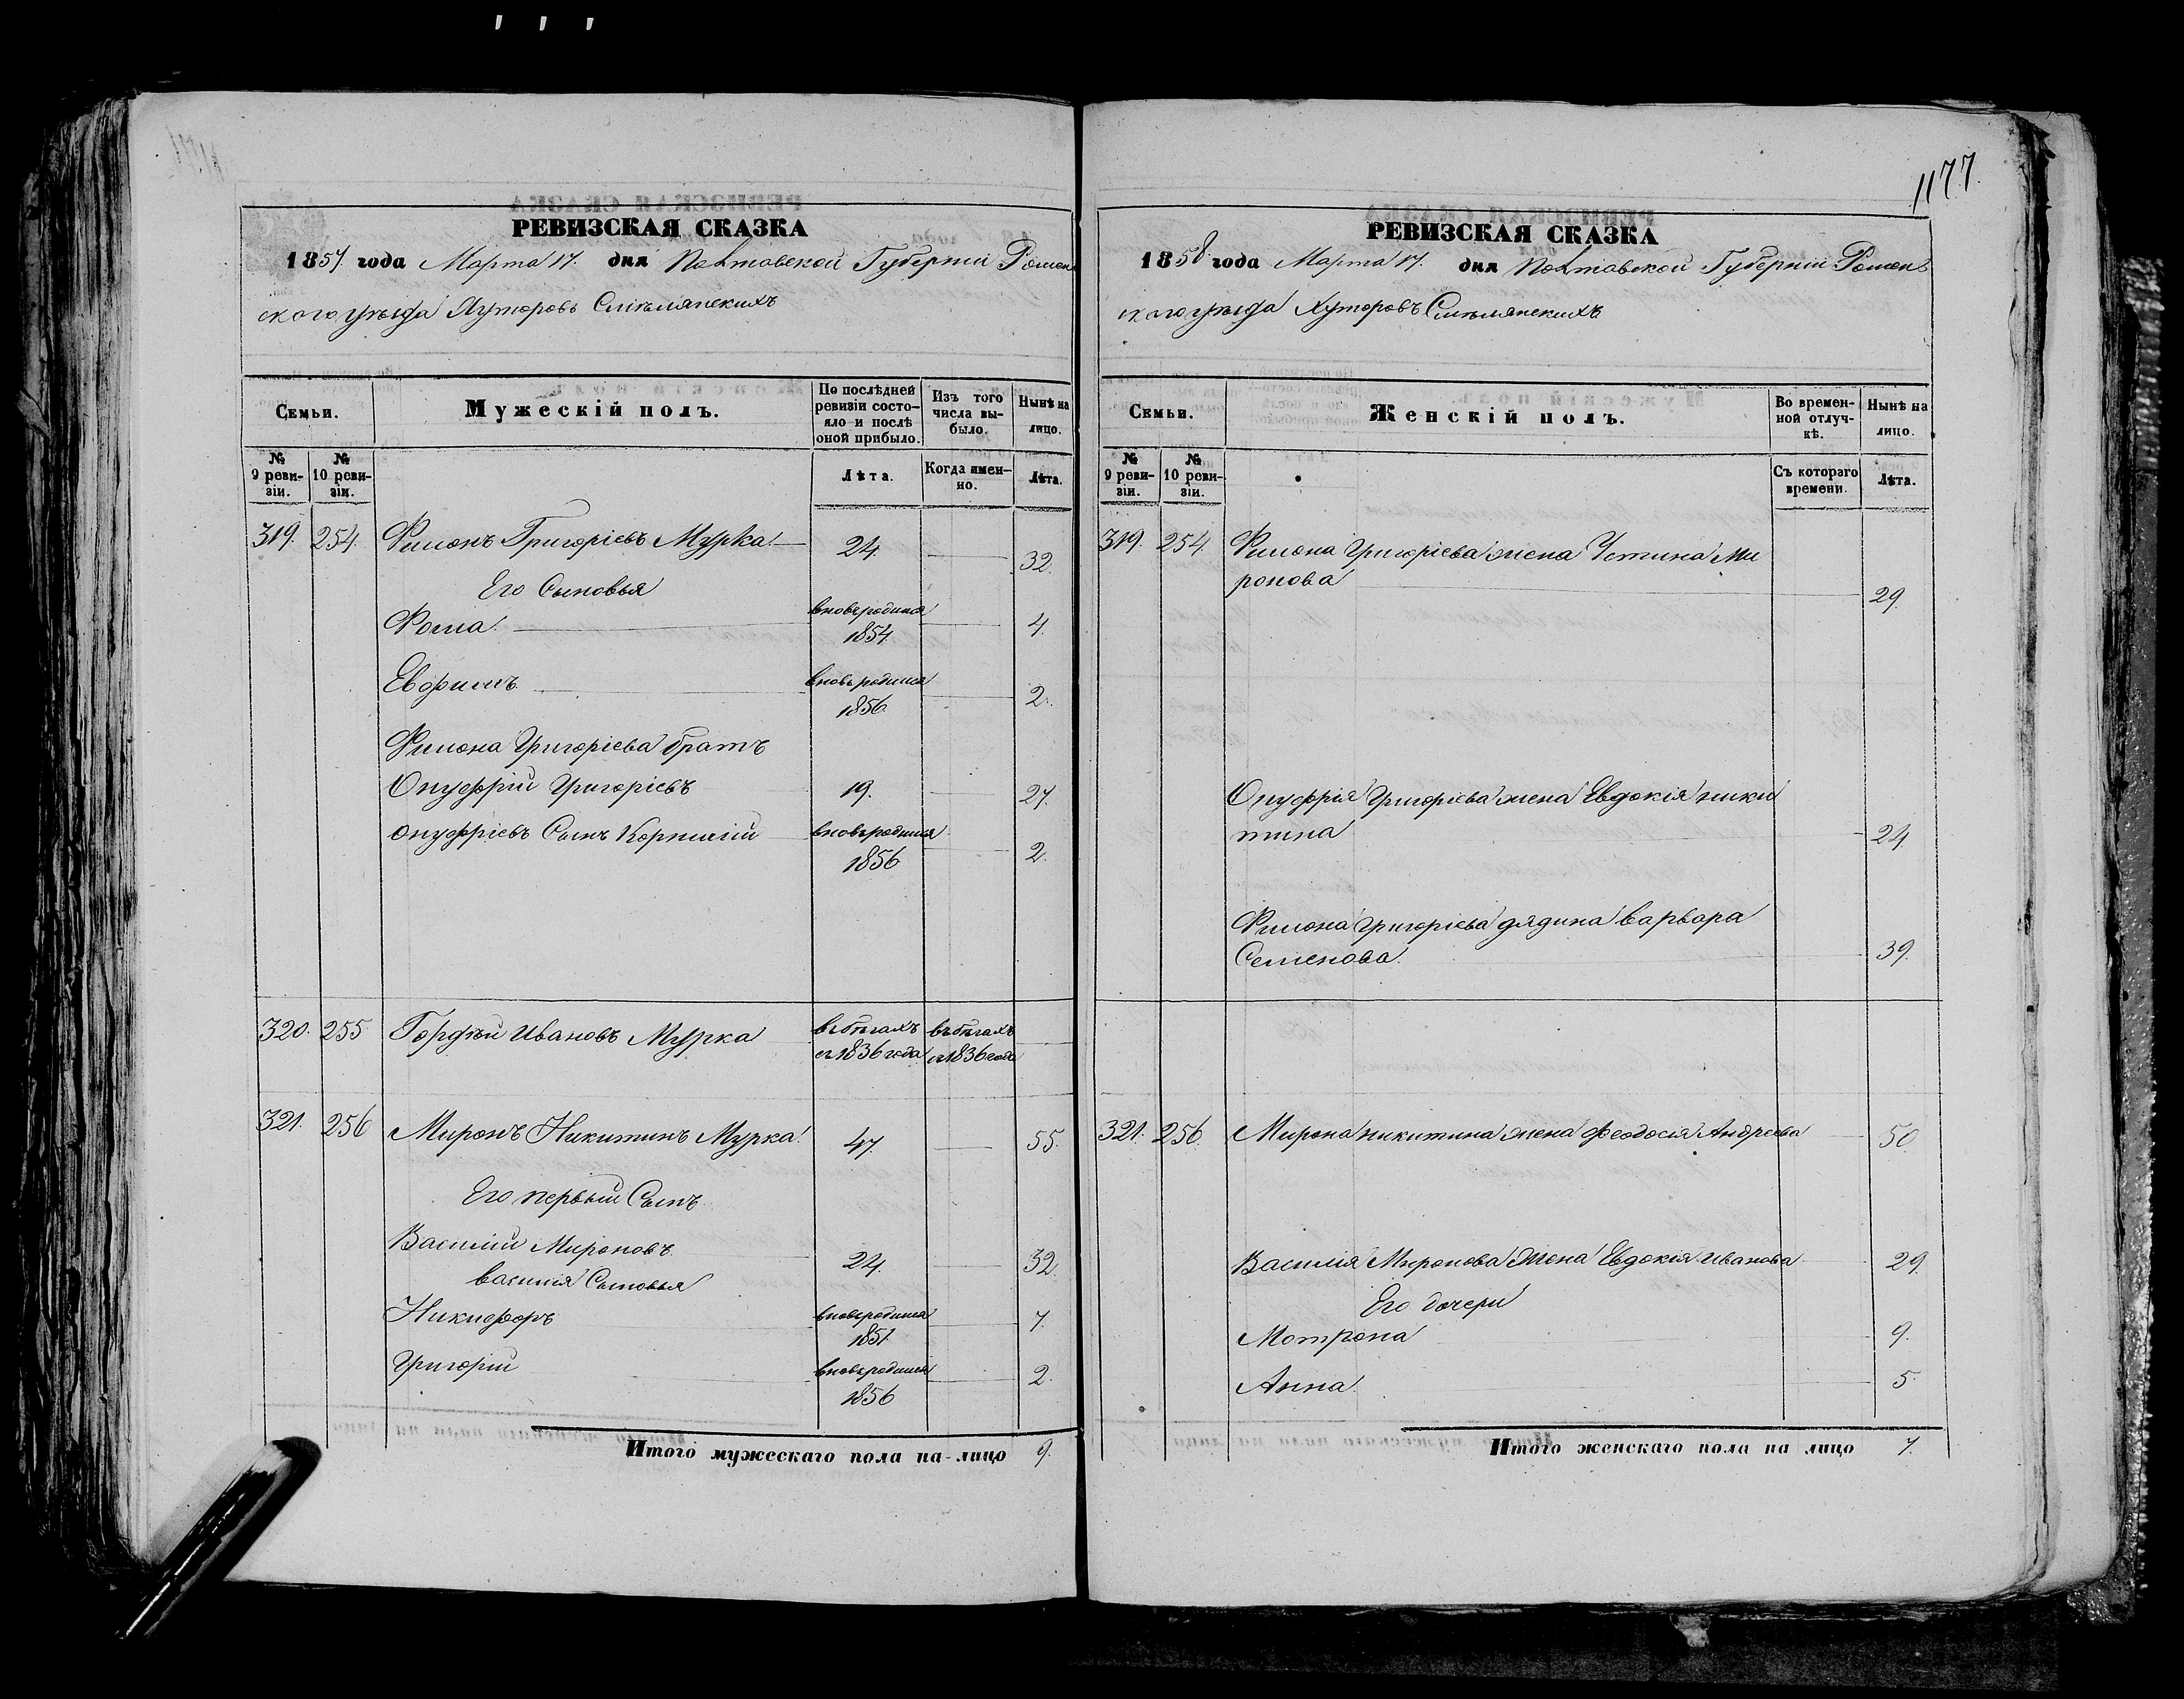 1177.
РЕВИЗСКАЯ СКАЗКА
1857 года Марта 17. дня Полтавской Губерніи Ромен
скаго уѣзда Хуторовъ Смѣлянскихъ
Семьи.
Мужескій полъ.
По послѣдней ревизіи состояло и послѣ оной прибыло.
Изъ того числа выбыло.
Нынѣ на лицо.
№ 9 ревизіи.
№ 10 ревизіи.
Лѣта.
Когда именно.
Лѣта.
319. 254. Филонъ Григорієвъ Мурка 24. 32.
Его Сыновья
Фома. вновьродился 1854. 4.
Евфимъ. вновьродился 1856. 2.
Филона Григорієва братъ
Онуфрій Григорієвъ 19. 27.
Онуфрієвъ Сынъ Корнилій вновьродился 1856 2.
320. 255 Гордѣй Ивановъ Мурка вбѣгахъ съ 1836 года въбѣгахъ съ 1836 года
321. 256 Миронъ Никитинъ Мурка. 47. 55.
Его первый Сынъ
Василій Мироновъ 24. 32.
Василія Сыновья
Никифоръ вновьродился 1851 7.
Григорій вновьродился 1856 2.
Итого мужескаго пола на-лицо 9.
РЕВИЗСКАЯ СКАЗКА
1858 года Марта 17. дня Полтавской Губерніи Ромен
скаго уѣзда Хуторовъ Смѣлянскихъ
Семьи.
Женскій полъ.
Во временной отлучкѣ.
Нынѣ на лицо.
№ 9 ревизіи.
№ 10 ревизіи.
Съ котораго времени.
Лѣта.
319. 254. Филона Григорієва жена Устина Ми
ронова 29.
Онуфрія Григорієва жена Евдокія ники
тина 24.
Филона Григорієва дядина варвара
Семенова. 39.
321. 256. Мирона никитина жена Феодосія Андреева 50.
Василія Миронова Жена Евдокія Иванова 29.
Его дочери
Мотрона 9.
Анна. 5.
Итого женскаго пола на лицо 7.